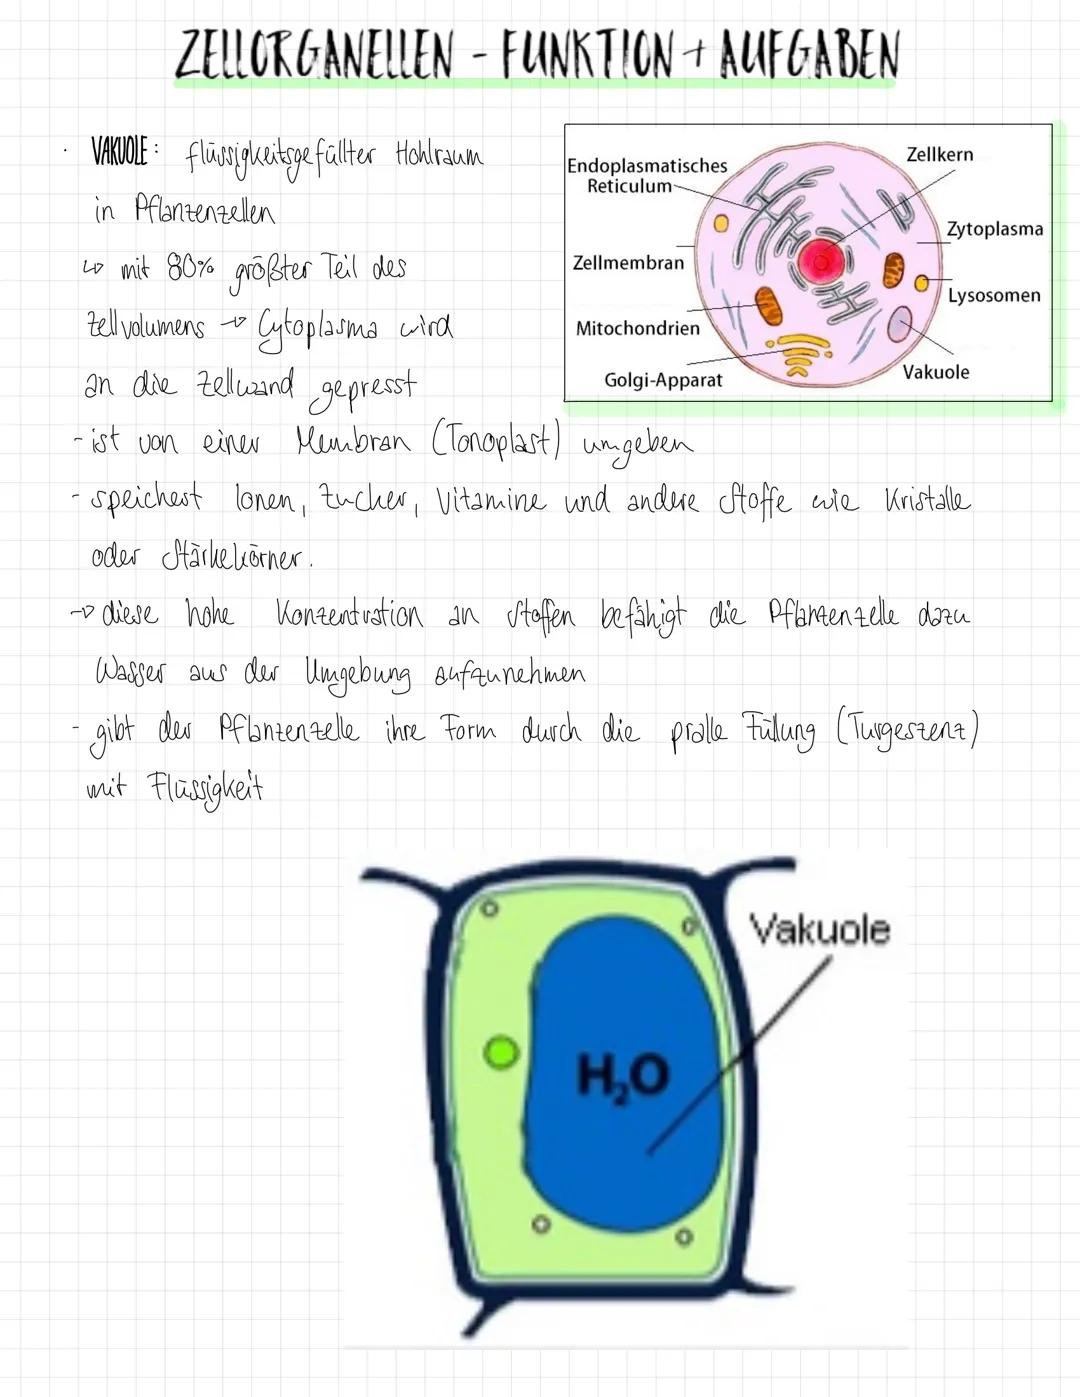 ZELLORGANELLEN - FUNKTION + AUFGABEN
· VAKUOLE: flüssigkeitsgefüllter Hohlraum
in Pflanzenzellen
↳ mit 80% größter Teil des
Zellvolumens → Cytoplasma wird
an die Zellwand gepresst
- ist von einer Membran (Tonoplast) umgeben
- speichert Ionen, Zucker, Vitamine und andere Stoffe wie Kristalle
oder Stärkekörner.
→ diese hohe Konzentration an Stoffen befähigt die Pflanzenzelle dazu
Wasser aus der Umgebung aufzunehmen
- gibt der Pflanzenzelle ihre Form durch die pralle Füllung (Turgeszenz)
mit Flüssigkeit
Endoplasmatisches
Reticulum
Zellkern
Zytoplasma
Zellmembran
Lysosomen
Mitochondrien
Vakuole
Golgi-Apparat
Vakuole
H₂O